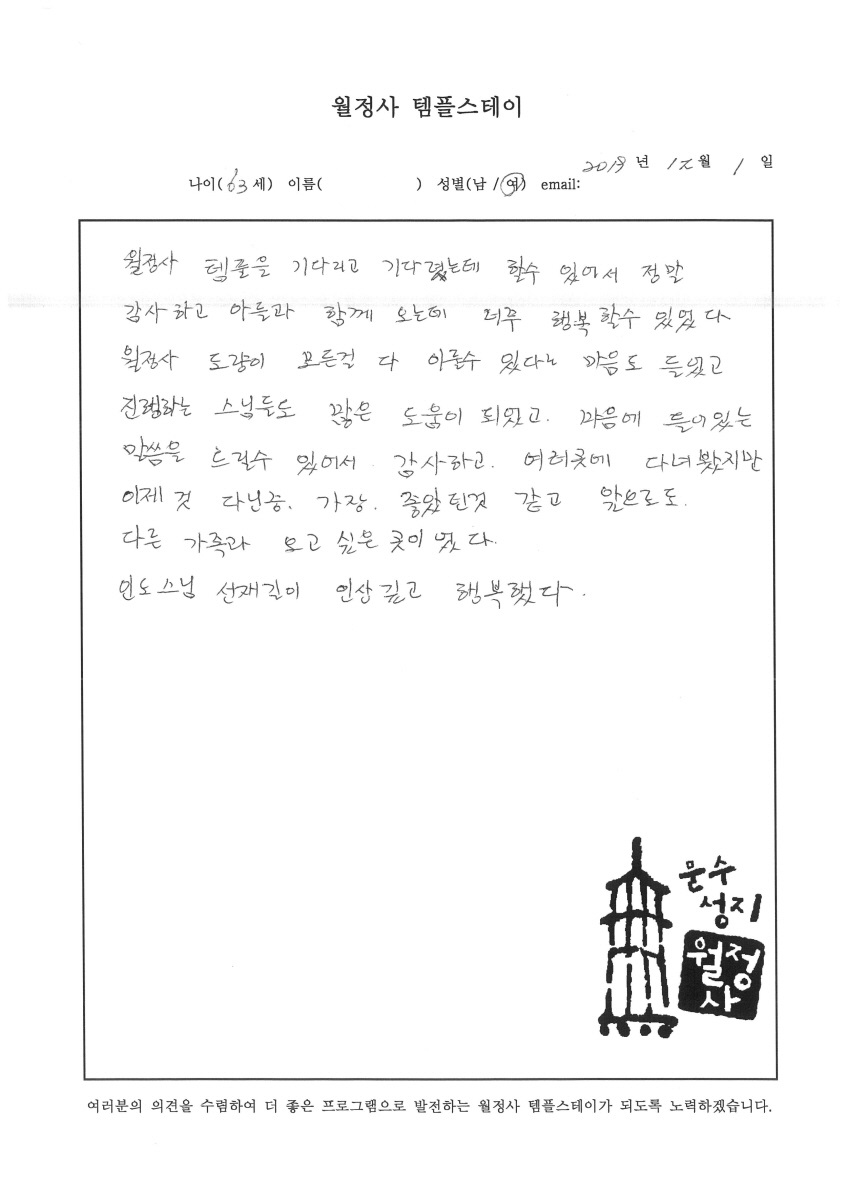 월정사 템플스테이
2019 년 12 월 1 일
나이( 63 세) 이름( ) 성별(남 / 여) email:
월정사 템플을 기다리고 기다렸는데 할수 있어서 정말
감사하고 아들과 함께 오는데 너무 행복할수 있었다
월정사 도량이 모든걸 다 아룰수 있다는 마음도 들었고
진행하는 스님들도 많은 도움이 되었고. 마음에 들어있는
말씀을 드릴수 있어서 감사하고. 여러곳에 다녀봤지만
이제것 다닌중. 가장. 좋았던것 같고 앞으로도.
다른 가족과 오고 싶은 곳이었다.
인도스님 선재길이 인상깊고 행복했다.
문수
성지
월정
사
여러분의 의견을 수렴하여 더 좋은 프로그램으로 발전하는 월정사 템플스테이가 되도록 노력하겠습니다.